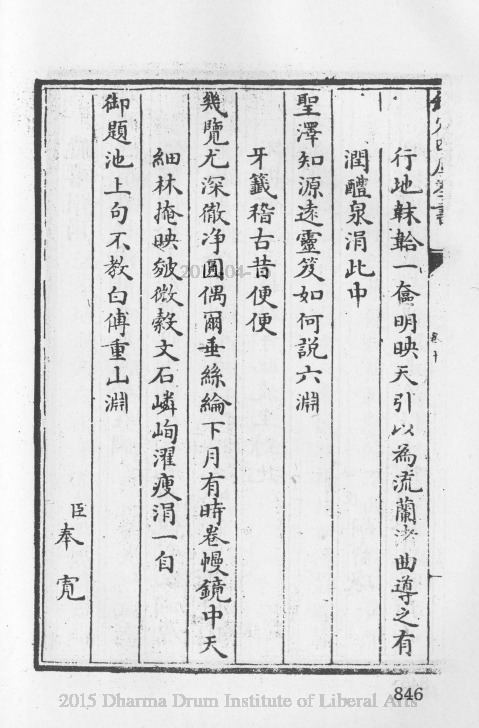 行地韎韐一奩明映天引以為流蘭沙曲導之有
潤醴泉涓此中
聖澤知源遠靈笈如何說六淵
牙籤稽古昔便便
幾覽尤深徹净圓偶爾垂絲綸下月有時卷幔鏡中天
細林掩映皴微縠文石嶙峋濯瘦涓一自
御題池上句不教白傅重山淵
臣奉寬
846
2015 Dharma Drum Institute of Liberal Arts